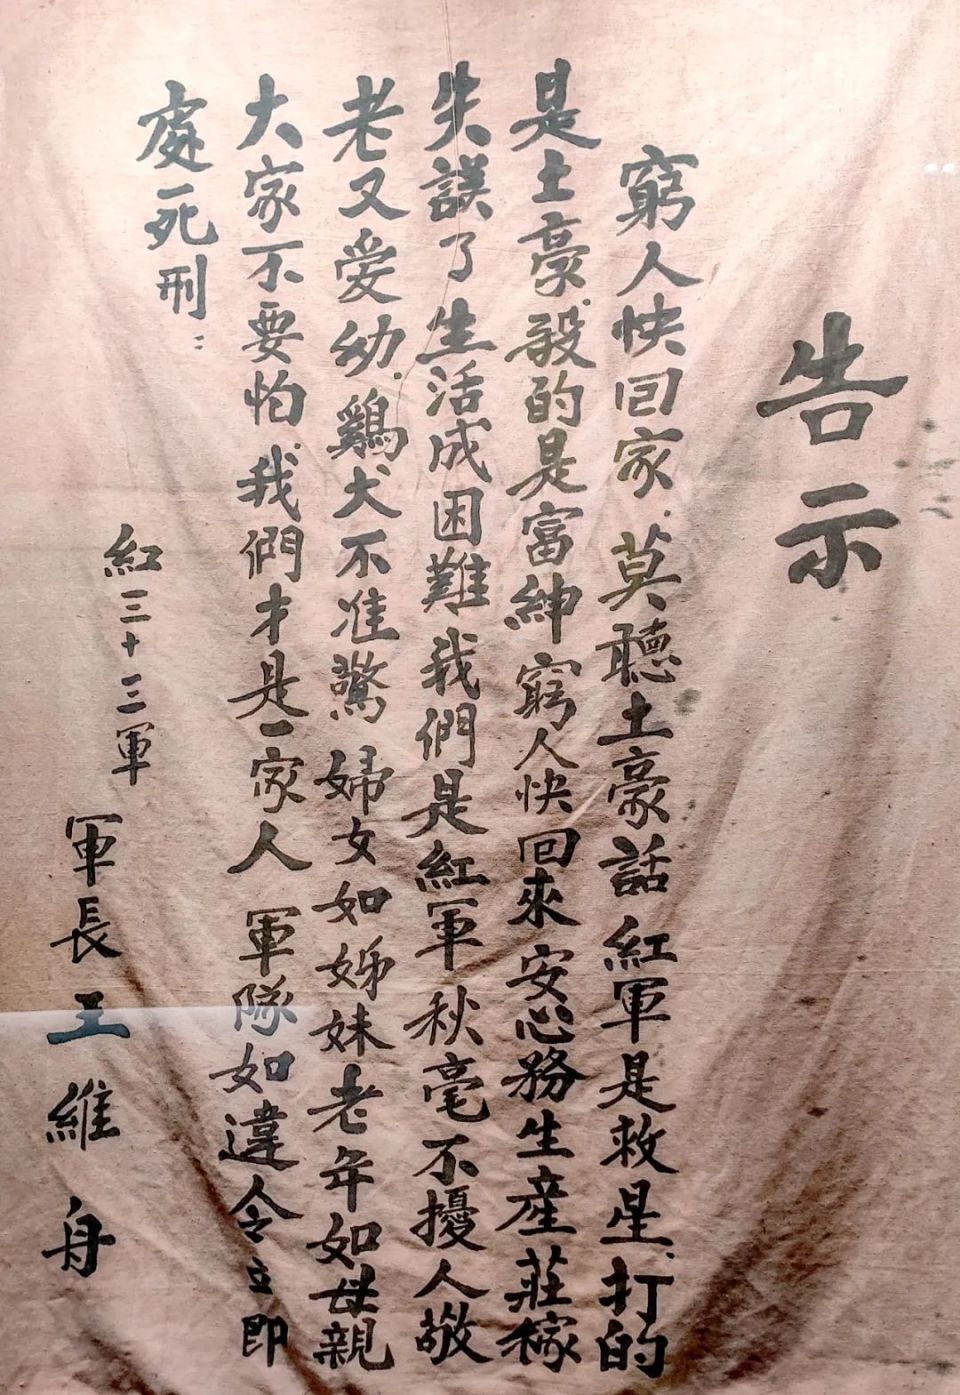 告示
窮人快回家.莫聽土豪話紅軍是救星.打的
是土豪.殺的是富紳窮人快回來安心務生產莊稼
失誤了生活成困難我們是紅軍秋毫不擾人敬
老又愛幼.鷄犬不准驚婦女如姊妹老年如母親
大家不要怕.我們才是一家人軍隊如違令立即
處死刑:
紅三十三軍
軍長王維舟